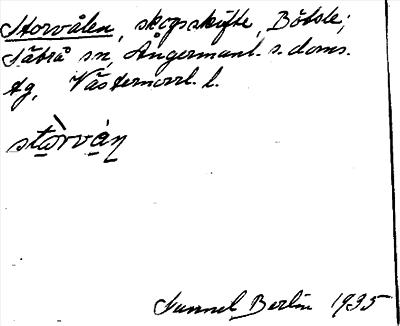 Storvålen, skogsskifte, Bölsle;
Såbrå sn, Ångermanl. s. doms.
tg, Västernorrl. l.
stòrvàn
Gunnel Berlin 1935